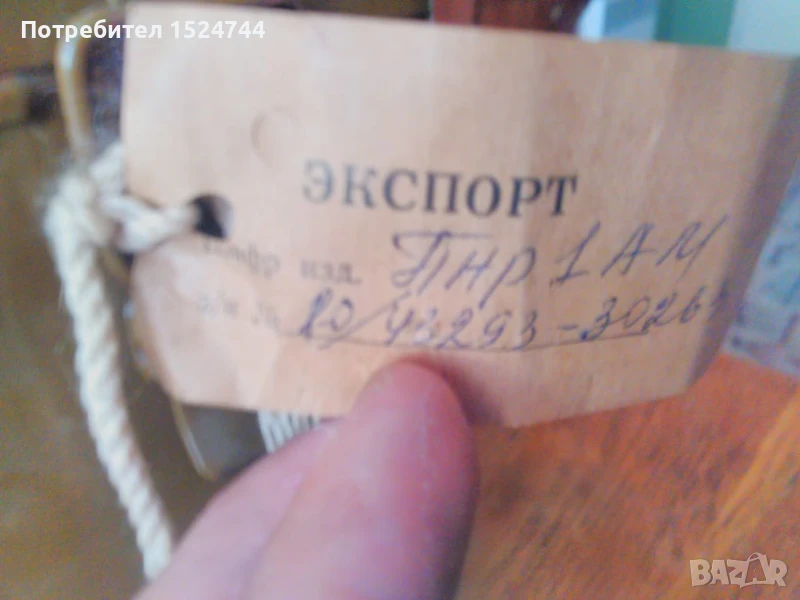 Потребител 1524744
ЭКСПОРТ
Шифр изд. ПНР 1 АМ
з/н № 20/43293-3026
BAZAR